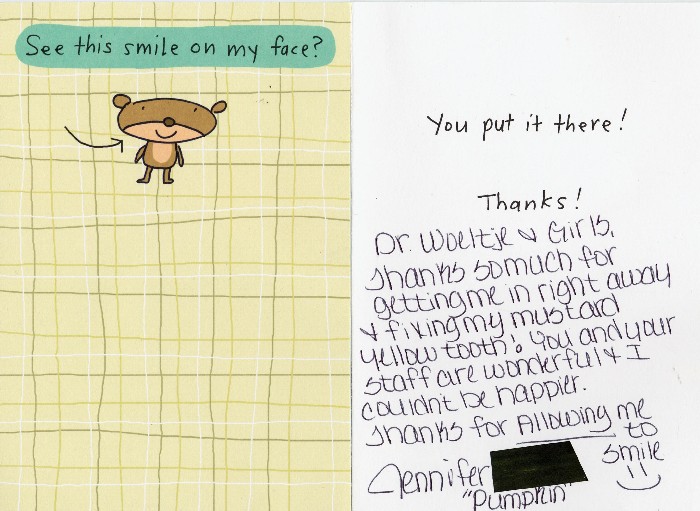 See this smile on my face?
You put it there!
Thanks!
Dr. Woeltje & Girls,
Thanks so much for
getting me in right away
& fixing my mustard
yellow tooth! You and your
staff are wonderful & I
couldn't be happier.
Thanks for Allowing me
to
smile
Jennifer
"Pumpkin"